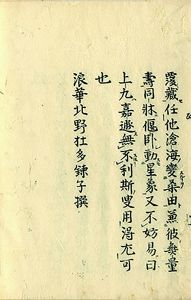 覆藏任他滄海變桑田薫彼無量
壽同牀偃臥動星象又不妨易曰
上九嘉遯無不利斯叟用得尤可
也
浪華北野杜多錬子撰